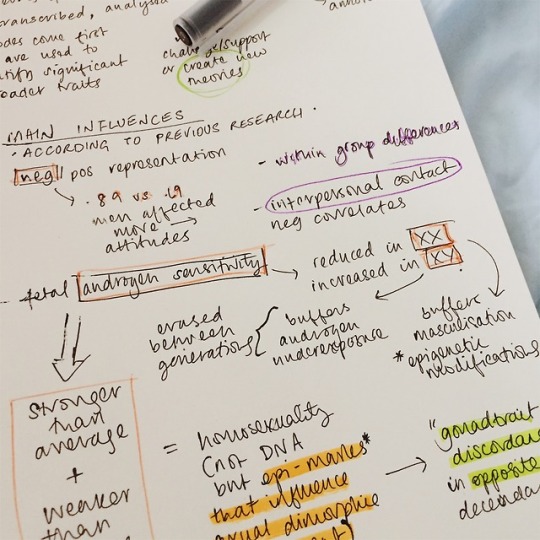 transcribed, analysed
codes come first
are used to
significant
traits
challenge/support
or create new
theories
MAIN INFLUENCES
• ACCORDING TO PREVIOUS RESEARCH •
neg / pos representation
.89 vs .19
men affected
more →
attitudes
- within group differences
- interpersonal contact
neg correlates
fetal androgen sensitivity → reduced in XX
increased in XY
erased
between
generations
buffers
androgen
underexposure
buffers
masculisation
* epigenetic
modifications
stronger
than
average
+
weaker
than
= homosexuality
(not DNA
but epi-marks*
that influence
sexual dimorphic
→ "gonadtrait
in opposite